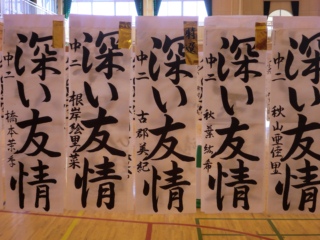 深い友情
中二 橋本
深い友情
中二 根岸絵里菜
特選
深い友情
中二 古郡美紀
深い友情
中二 秋葉
深い友情
中二 秋山亜佳里